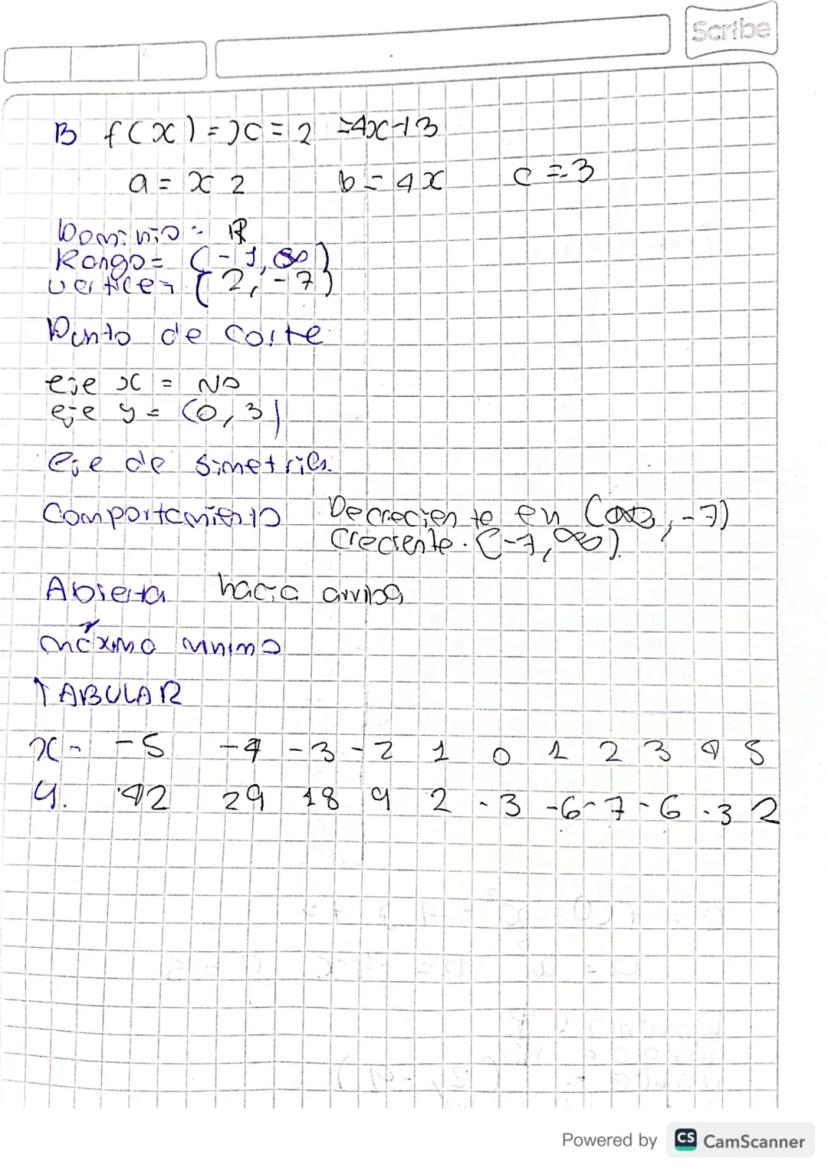 Scribe
B f(x) = x = 2 = 4x - 13
a = x 2 b = 4x c = 3
Dominio = R
Rango = (-7, ∞)
vertice = (2, -7)
Punto de corte
eje x = No
eje y = (0, 3)
eje de simetria
Comportamiento Decreciente en (∞, -7)
Creciente. (-7, ∞)
Abierta hacia arriba
máximo minimo
TABULAR
x - -5 -4 -3 -2 1 0 1 2 3 4 5
y. 42 29 18 9 2 -3 -6 -7 -6 -3 2
Powered by CS CamScanner